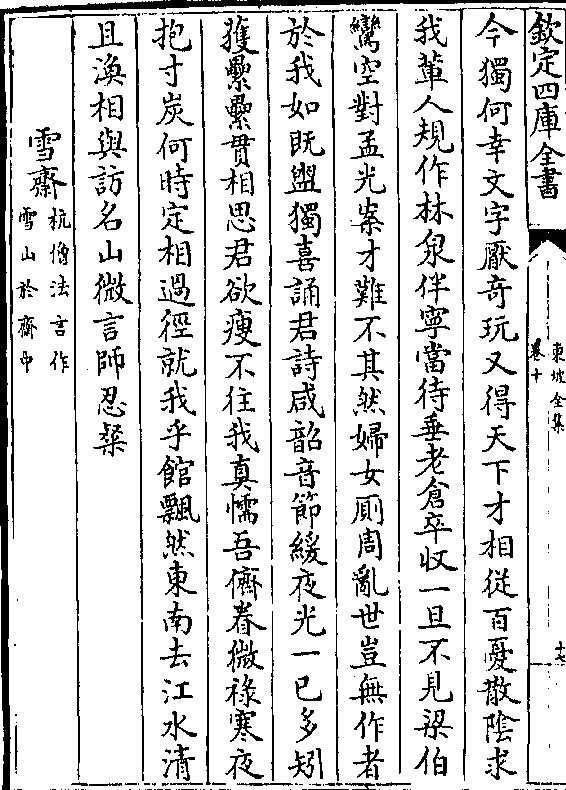 欽定四庫全書
東坡全集
卷十
十七
今獨何幸文字厭奇玩又得天下才相從百憂散陰求
我輩人規作林泉伴寧當待垂老倉卒收一旦不見梁伯
鸞空對孟光案才難不其然婦女厠周亂世豈無作者
於我如既盥獨喜誦君詩咸韶音節緩夜光一已多矧
獲纍纍貫相思君欲瘦不往我真懦吾儕眷微祿寒夜
抱寸炭何時定相過徑就我乎館飄然東南去江水清
且渙相與訪名山微言師忍粲
雪齋
杭僧法言作
雪山於齋中